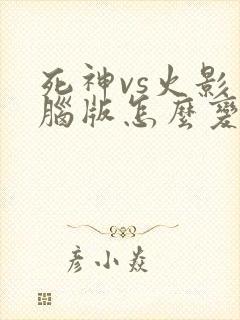 死神vs火影
腦版怎麼變
彦小焱